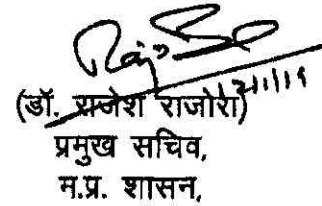 (डॉ. राजेश राजोरा)
प्रमुख सचिव,
म.प्र. शासन,